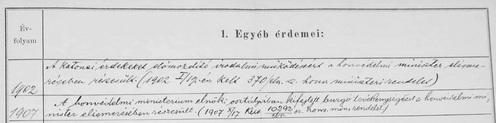 Év-
folyam
I. Egyéb érdemei:
A katonai érdekeket előmozdító irodalmi működéséért a honvédelmi miniszter elisme-
résében részesült. (1902 kelt 370/eln. sz. honv. miniszteri rendelet)
1902
A honvédelmi ministerium elnöki osztályában kifejtett buzgó tevékenységéért a honvédelmi mi-
1907
nister elismerésében részesült (1907 Kelt 10292 honv. min. rendelet)